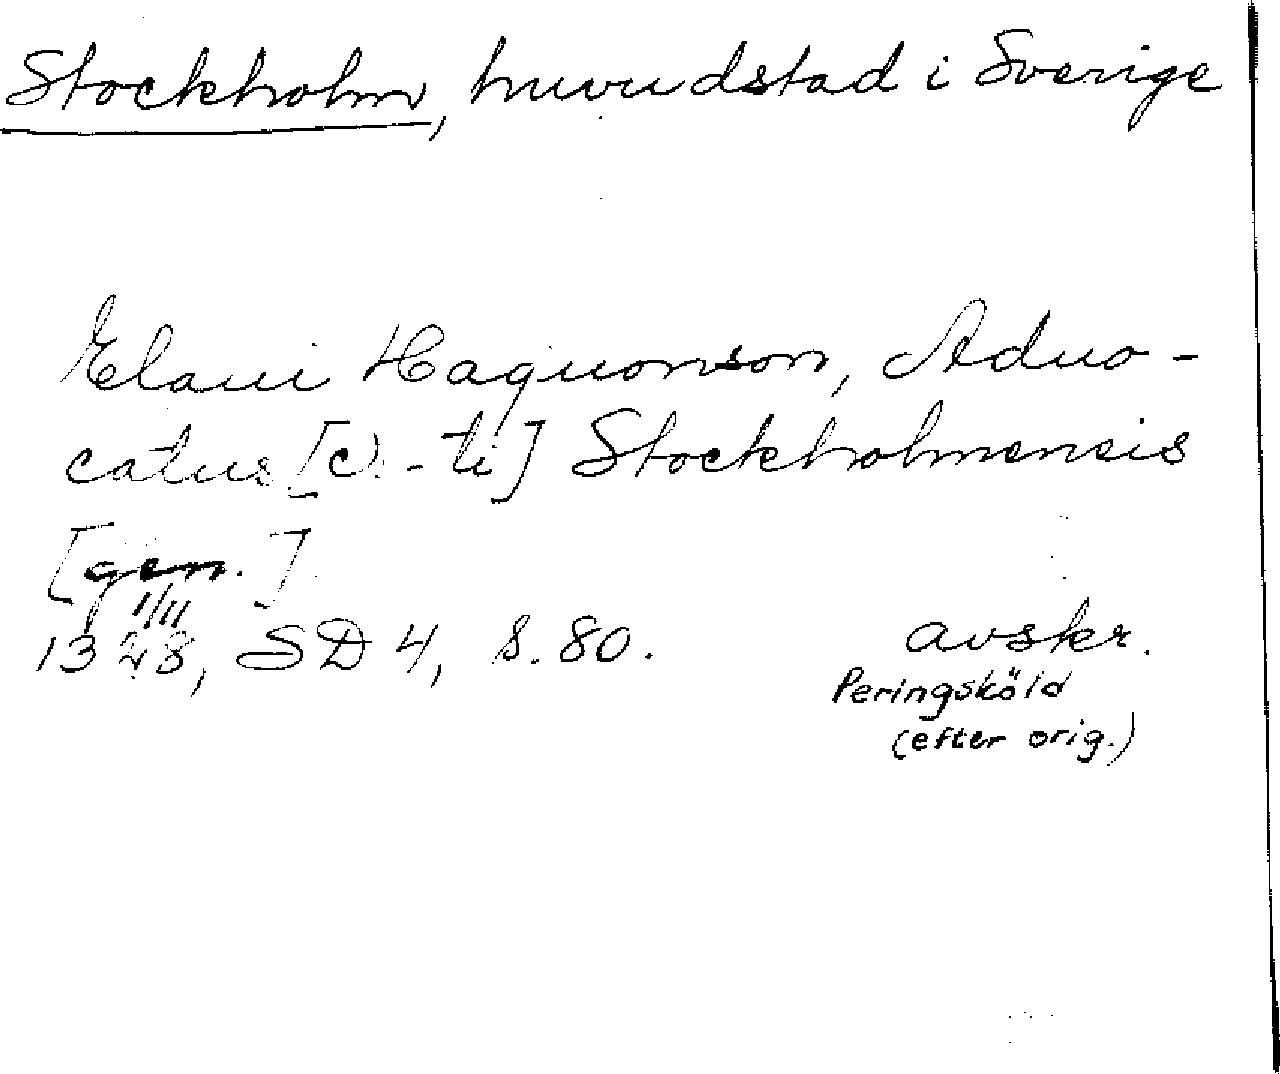 Stockholm, huvudstad i Sverige
Elaui Haquonson, Aduo-
catus [ɔ: -ti] Stockholmensis
[gen.]
1/11
1328, SD 4, s. 80.
avskr.
Peringsköld
(efter orig.)